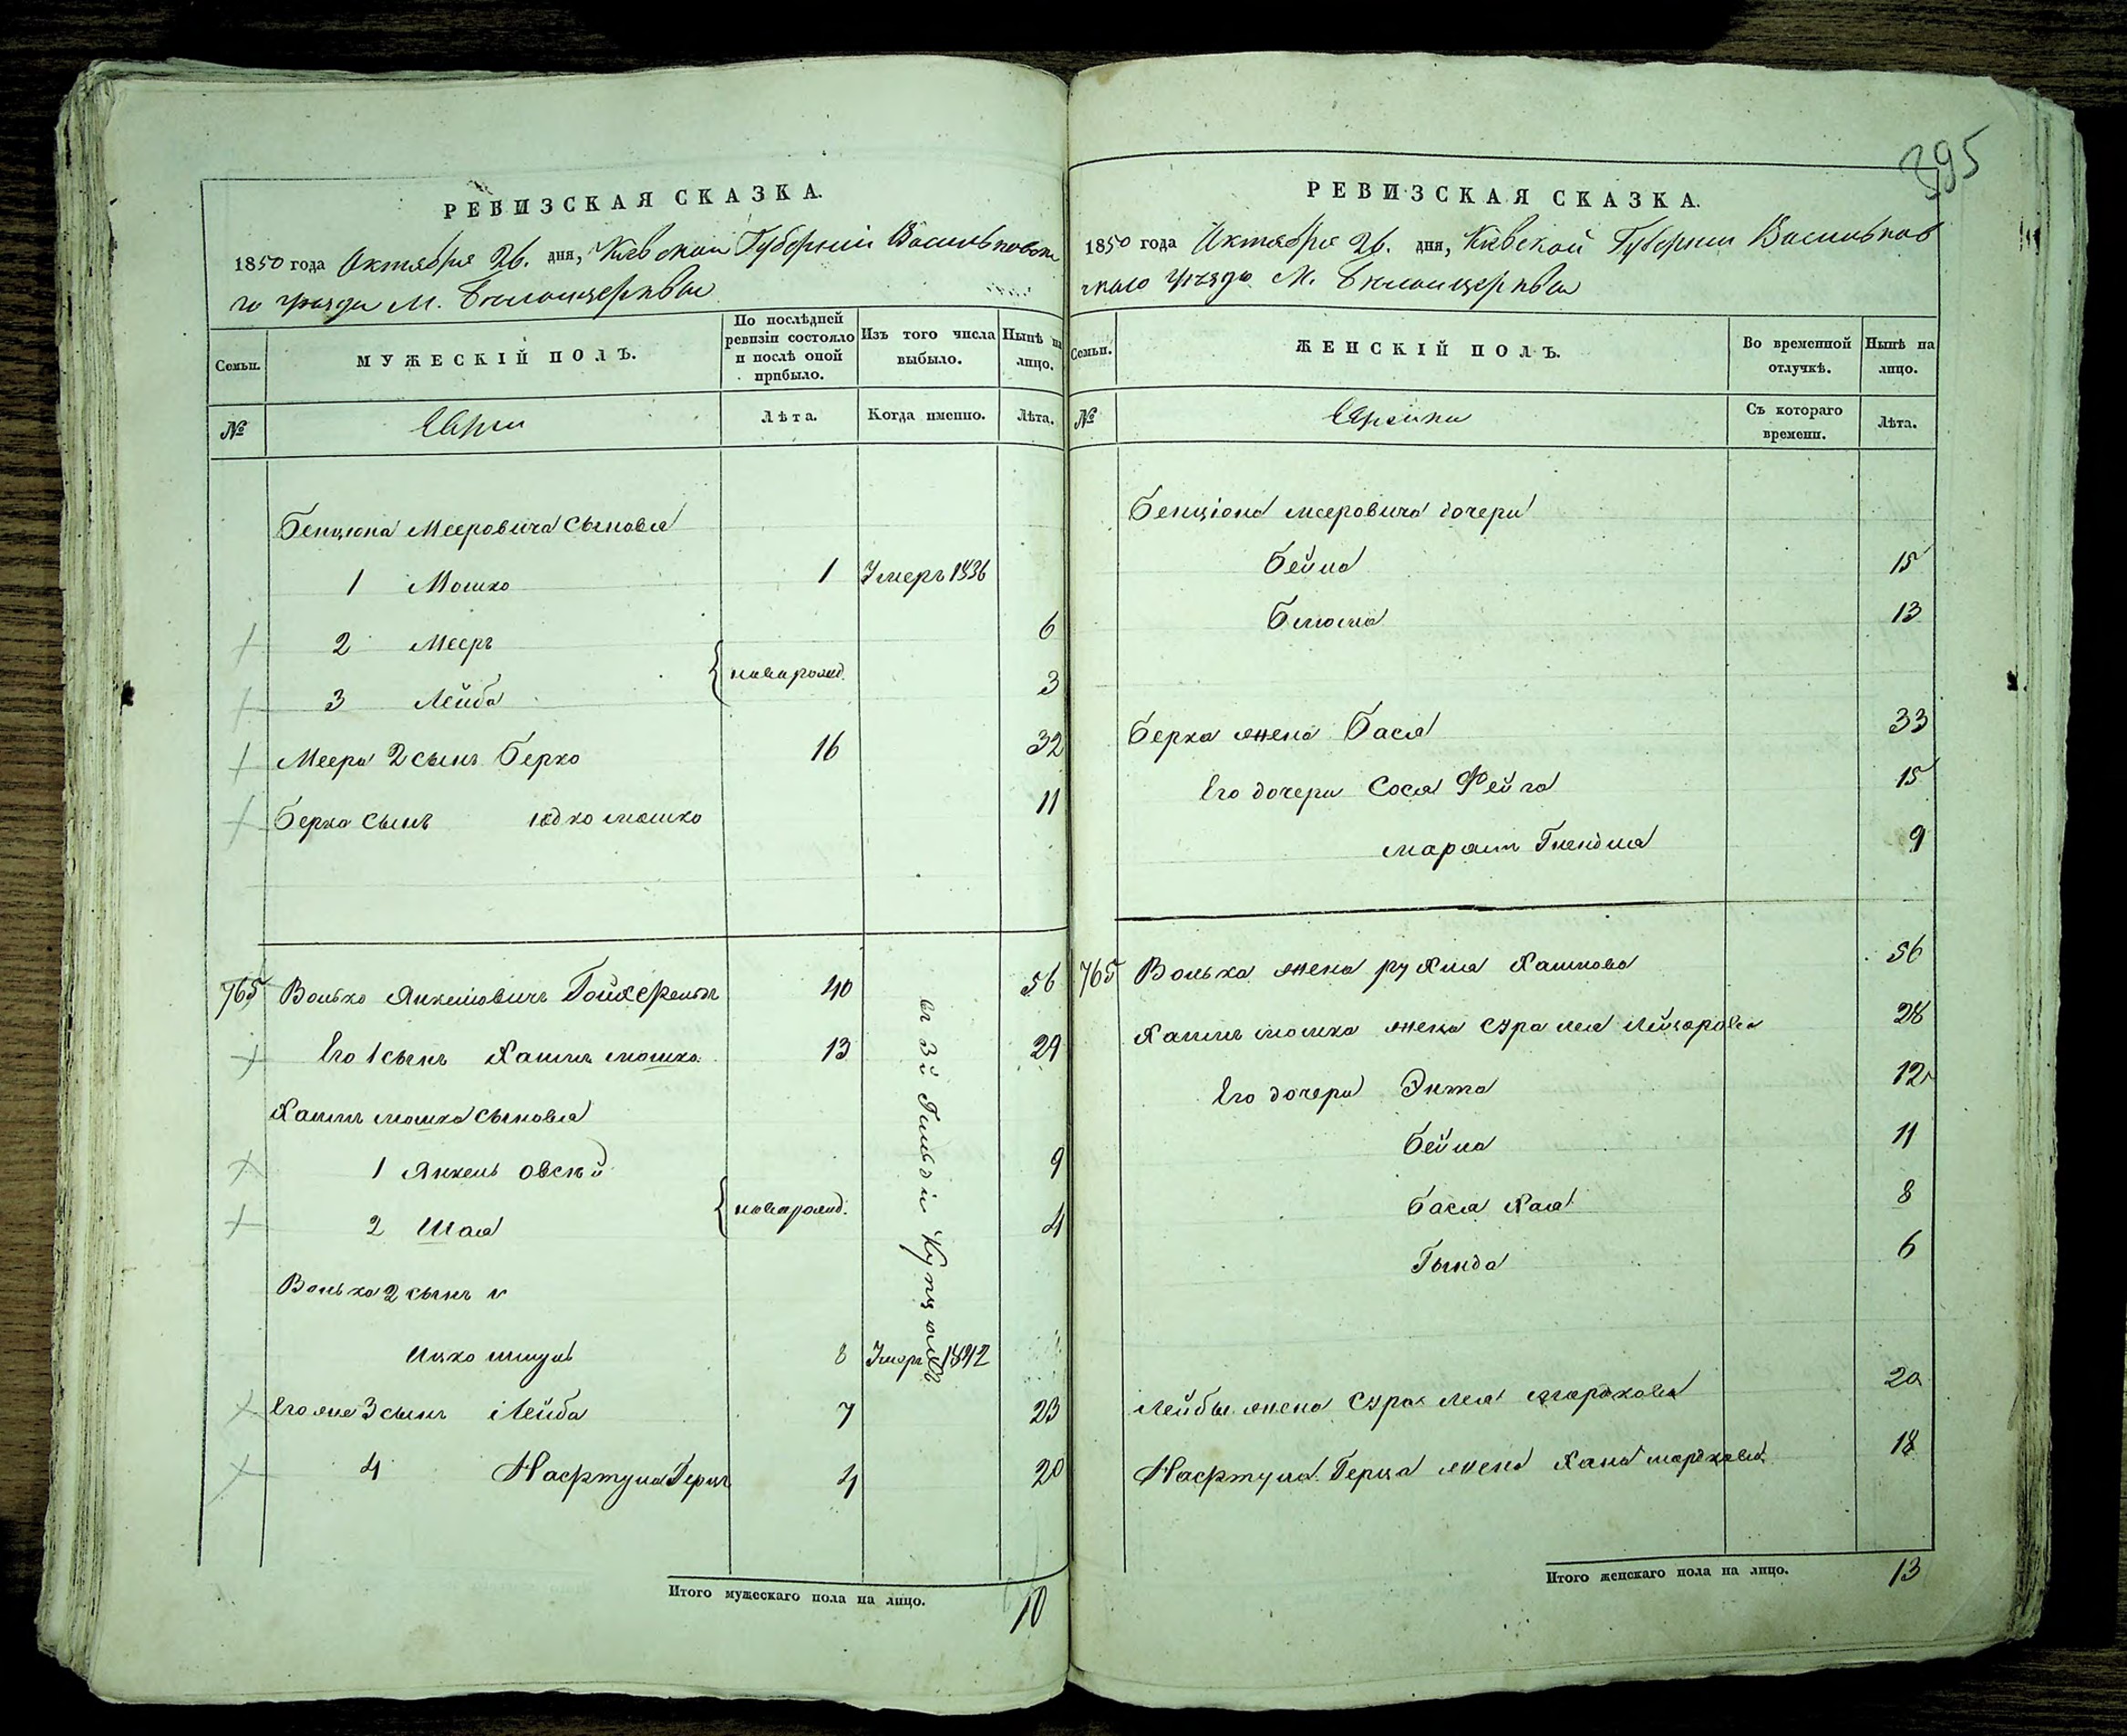 РЕВИЗСКАЯ СКАЗКА.
1850 года Октября 26. дня, Киевской Губернии Васильковска
го уезда М. Белойцеркви
Семьи.
МУЖЕСКІЙ ПОЛЪ.
По послѣдней ревизіи состояло и послѣ оной прибыло.
Изъ того числа выбыло.
Нынѣ на лицо.
№
Евреи
Лѣта.
Когда именно.
Лѣта.
Бенциона Мееровича сыновья
1 Мошко 1 Умеръ 1836
2 Мееръ 6
новорожд.
3 Лейба 3
Меера 2 сынъ Берко 16 32
Берка сынъ Юдко Мошко 11
765 Волько Янкелевичъ 40 56
Его 1 сынъ Хаимъ Мошко 13 29
Хаимъ Мошка сыновья
1 Янкель Овсѣй 9
новорожд.
2 Шая 4
въ 3й Гильдіи Купцахъ
Волька 2 сынъ
Ицко Шмуль 8 Умеръ 1842
Его же 3 сынъ Лейба 7 23
4 Нафтула Герцъ 4 20
Итого мужескаго пола на лицо.
10
395
РЕВИЗСКАЯ СКАЗКА.
1850 года Октября 26. дня, Киевской Губернии Васильков
скаго уезда М. Белойцеркви
Семьи.
ЖЕНСКІЙ ПОЛЪ.
Во временной отлучкѣ.
Нынѣ на лицо.
№
Еврейки
Съ котораго времени.
Лѣта.
Бенціона Мееровича дочери
Бейла 15
Блюма 13
Берка жена Бася 33
Его дочери Сося Фейга 15
Гнендля 9
765 Волька жена Рухля Хаимова 56
Хаимъ Мошка жена Сура Лея 28
Его дочери Энта 12
Бейла 11
Бася Хая 8
Гында 6
Лейбы жена Сура Лея 20
Нафтула Герца жена Хана Мордкова 18
Итого женскаго пола на лицо.
13